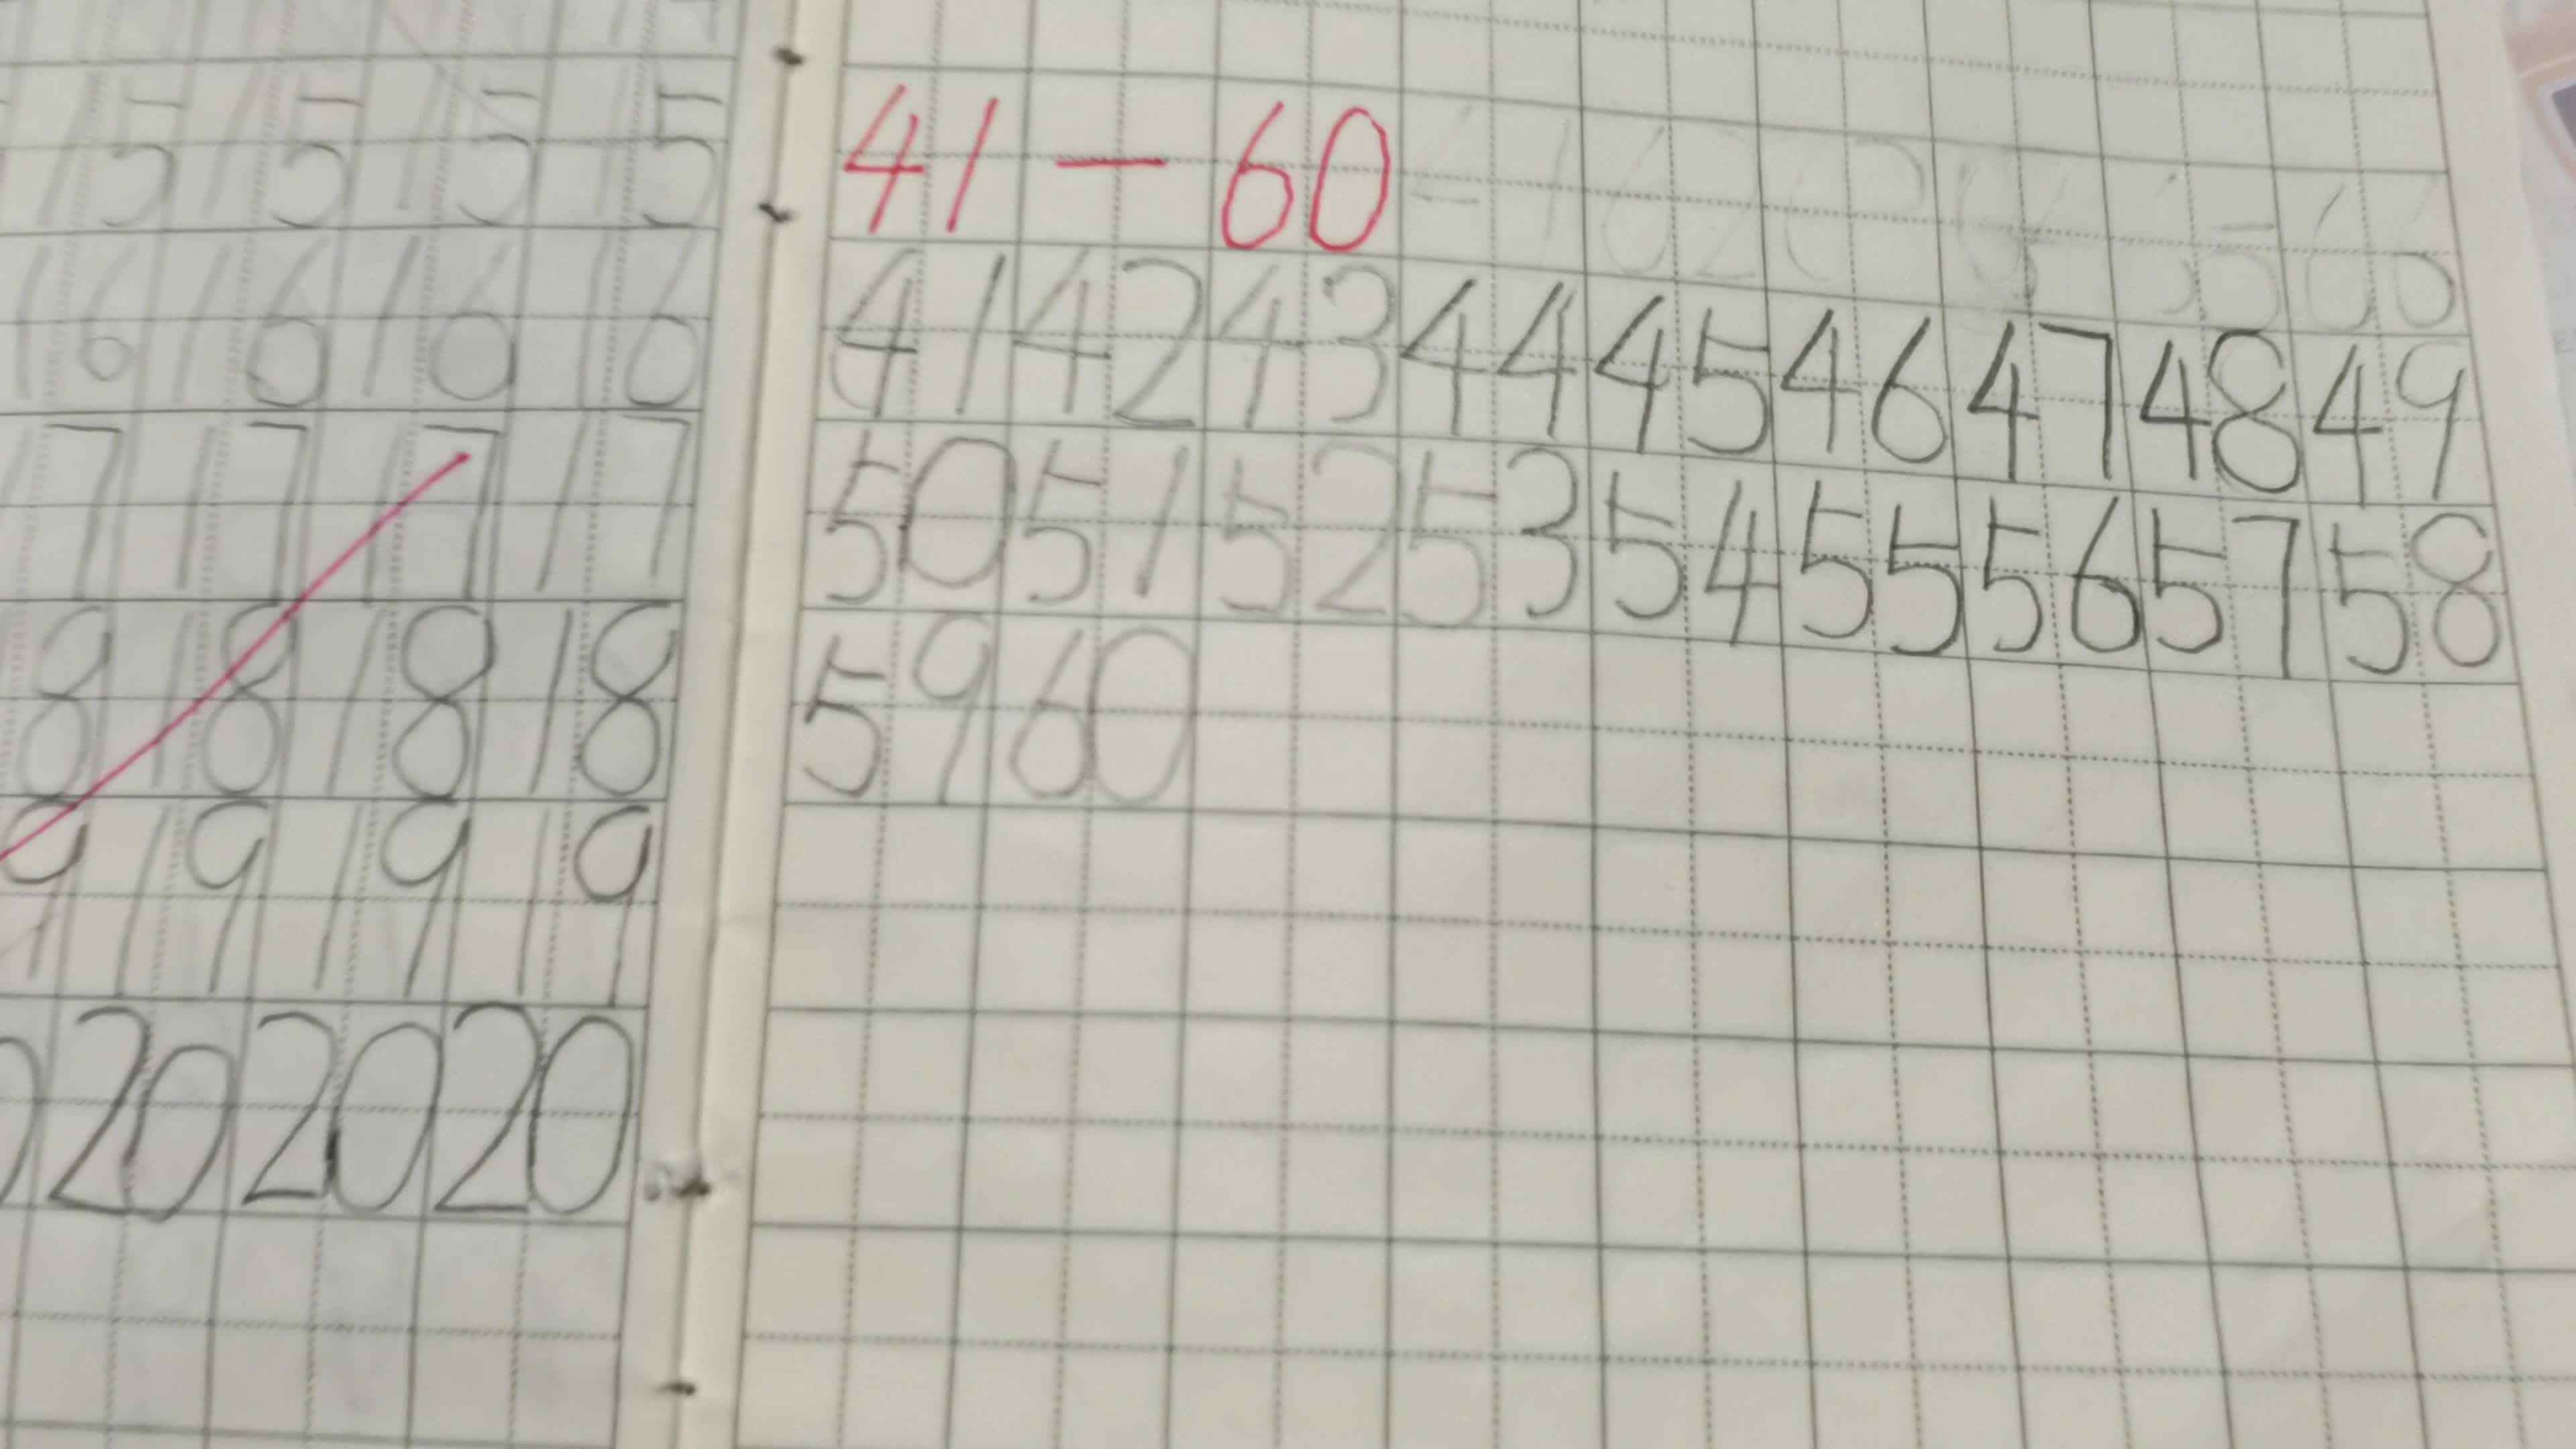 15 15 15 15
16 16 16 16
17 17 17 17
18 18 18 18
19 19 19 19
20 20 20
41 — 60
41 42 43 44 45 46 47 48 49
50 51 52 53 54 55 56 57 58
59 60